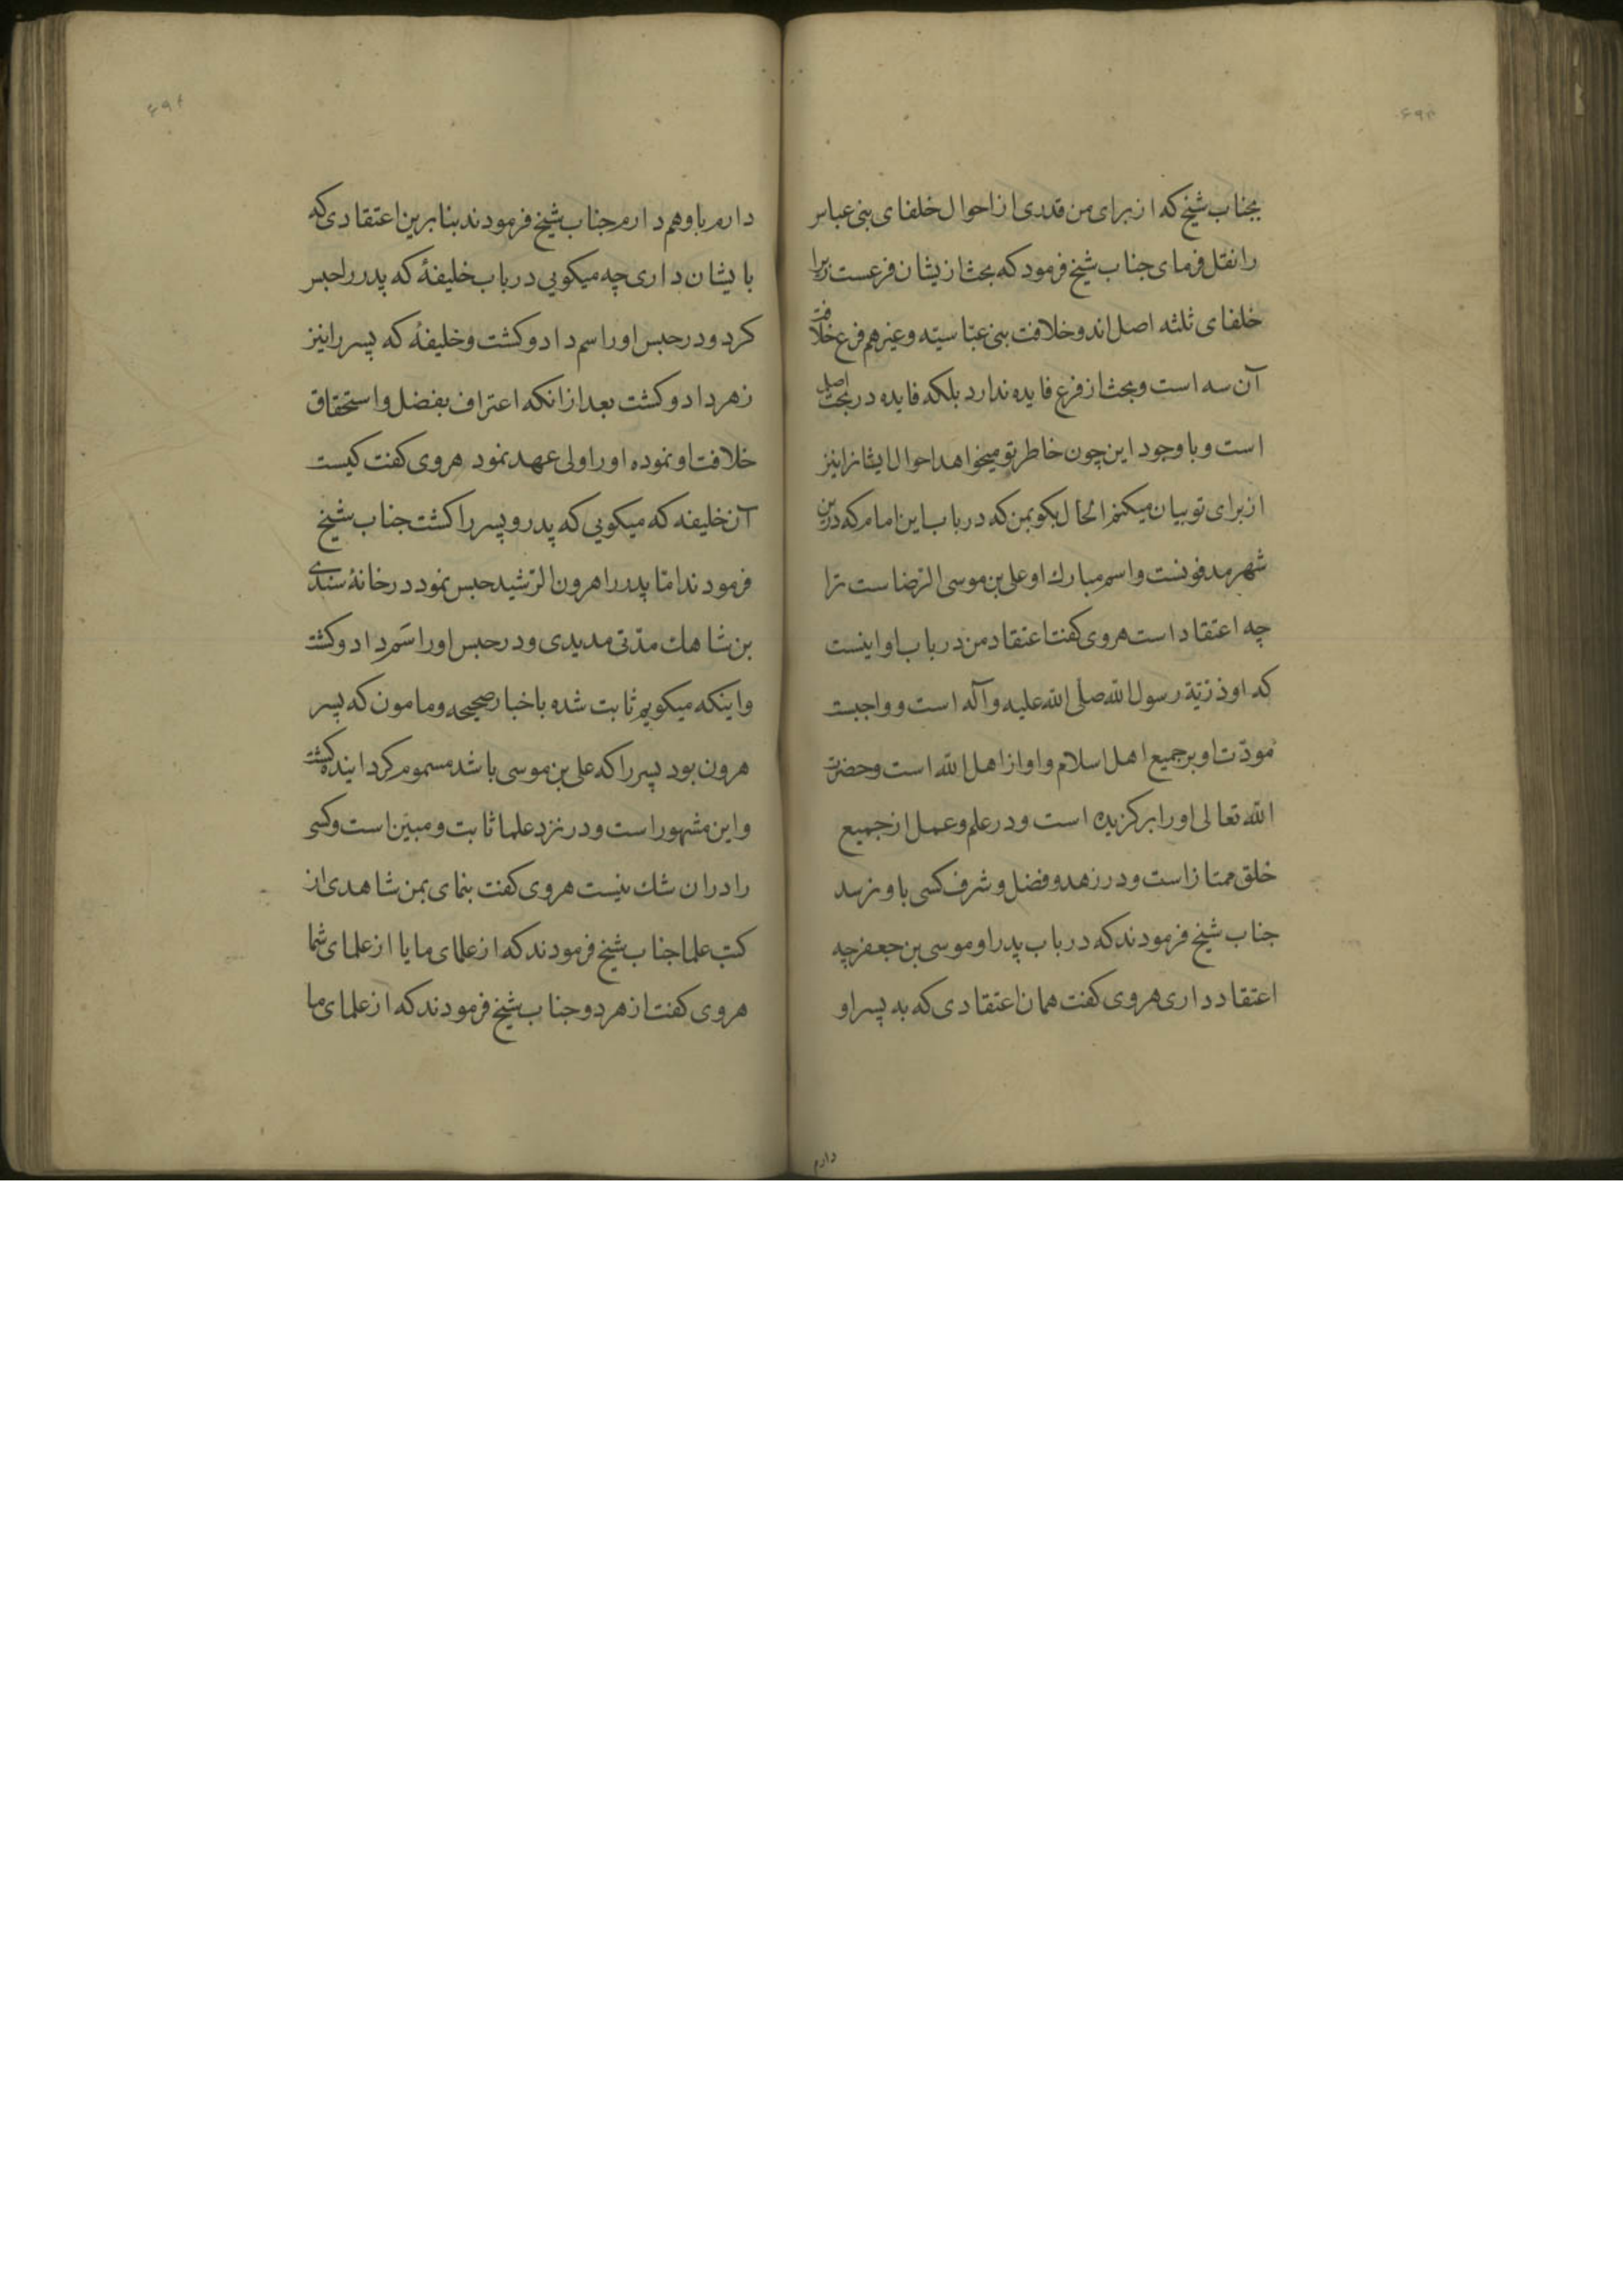 بجناب شیخ که از برای من قدری از احوال خلفای بنی عباس
را نقل فرمای جناب شیخ فرمود که بحث ازیشان فرعست زیرا
خلفای ثلثه اصل اند و خلافت بنی عباسیّه و غیرهم فرع خلافت
آن سه است و بحث از فرع فایده ندارد بلکه فایده در بحث اصل
است و با وجود این چون خاطر تو میخواهد احوال ایشانرا نیز
از برای تو بیان میکنم الحال بکو بمن که در باب این امام که درین
شهر مدفونست و اسم مبارك او علی بن موسی الرّضاست ترا
چه اعتقاد است هروی کفت اعتقاد من در باب او اینست
که او ذرّیّة رسول الله صلّی الله علیه و آله است و واجبست
مودّت او بر جمیع اهل اسلام و او از اهل الله است و حضرت
الله تعالی او را برکزیده است و در علم و عمل از جمیع
خلق ممتاز است و در زهد و فضل و شرف کسی باو نرسد
جناب شیخ فرمودند که در باب پدر او موسی بن جعفر چه
اعتقاد داری هروی کفت همان اعتقادی که به پسر او
دارم
دارم باو هم دارم جناب شیخ فرمودند بنابرین اعتقادی که
بایشان داری چه میکویی در باب خلیفهٔ که پدر را حبس
کرد و در حبس او را سم داد و کشت و خلیفهٔ که پسر را نیز
زهر داد و کشت بعد از انکه اعتراف بفضل و استحقاق
خلافت او نموده او را ولی عهد نمود هروی کفت کیست
آن خلیفه که میکویی که پدر و پسر را کشت جناب شیخ
فرمودند امّا پدر را هرون الرّشید حبس نمود در خانهٔ سندی
بن شاهك مدّتی مدیدی و در حبس او را سَم داد و کشت
و اینکه میکویم ثابت شده باخبار صحیحه و مامون که پسر
هرون بود پسر را که علی بن موسی باشد مسموم کردانیده کشت
و این مشهور است و در نزد علما ثابت و مبیّن است و کسی
را در ان شك نیست هروی کفت بنمای بمن شاهدی از
کتب علما جناب شیخ فرمودند که از علمای ما یا از علمای شما
هروی کفت از هر دو جناب شیخ فرمودند که از علمای ما